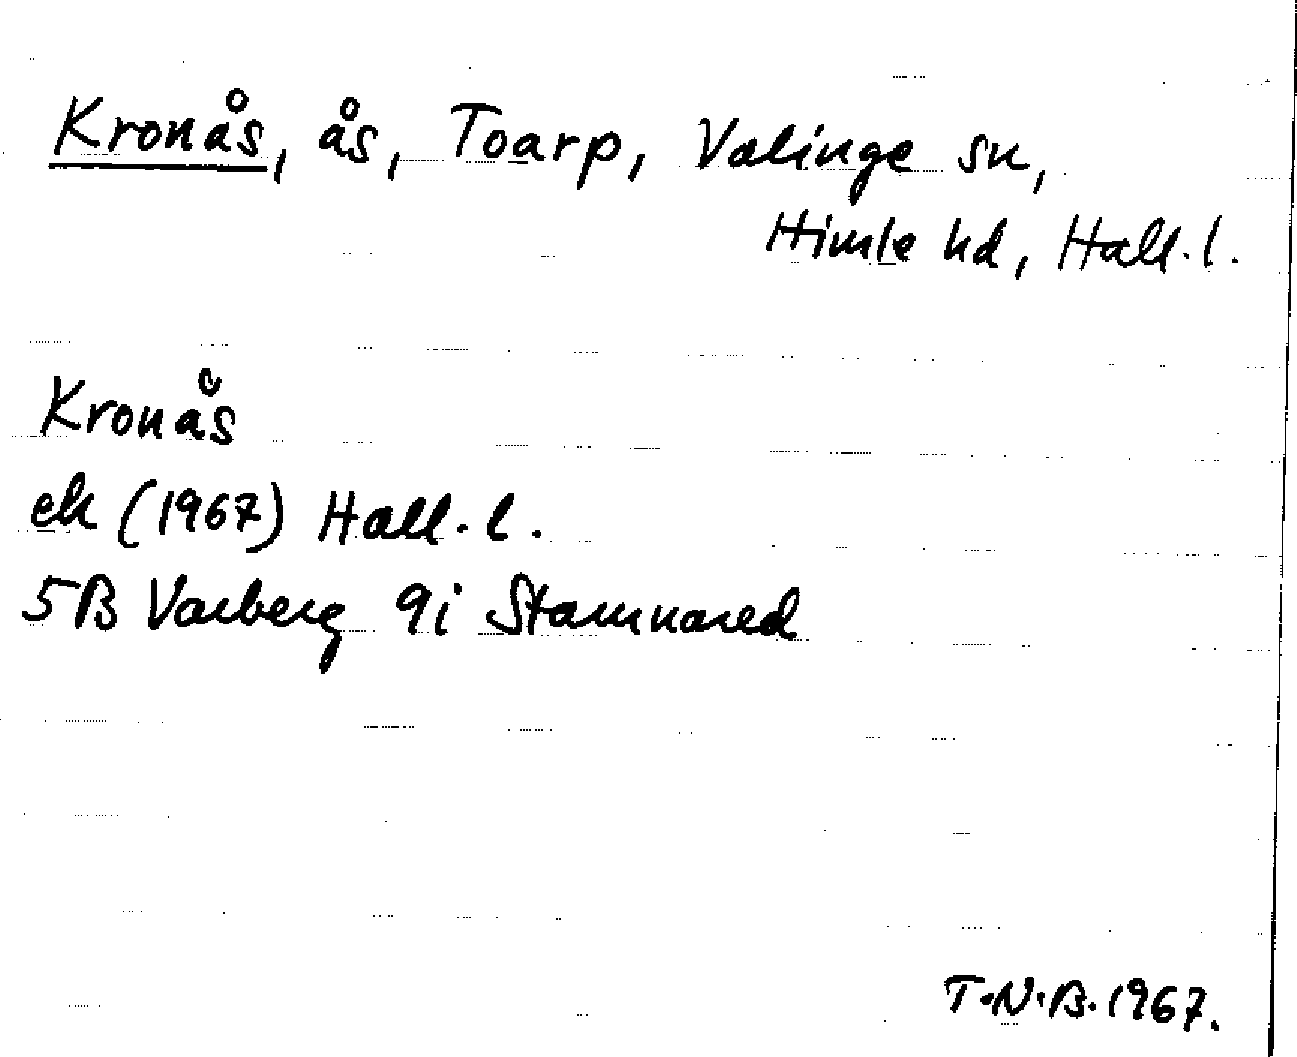 Kronås, ås, Toarp, Valinge sn,
Himle hd, Hall. l.
Kronås
ek (1967) Hall. l.
5B Varberg 9i Stamnared
T.N.B. 1967.